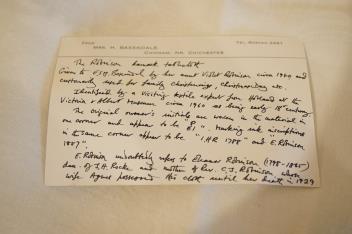 FROM
MRS. H. BAXENDALE
CHIDHAM, NR. CHICHESTER
TEL. BOSHAM
The Robinson damask tablecloth
Given to by her aunt Violet Robinson circa 1940 and
customarily used for family christenings, Christmas Day etc.
Identified by a visiting textile expert from Holland at the
Victoria & Albert Museum circa 1960 as being early 18th century
The original owner's initials are woven in the material in
one corner and appear to be Marking ink inscriptions
in the same corner appear to be "I.H.R 1788" and "E. Robinson
E. Robinson undoubtedly refers to Eleanor Robinson
dau. of J.H. and mother of Rev. C.J. Robinson, whose
wife Agnes possessed this cloth until her death in 1929